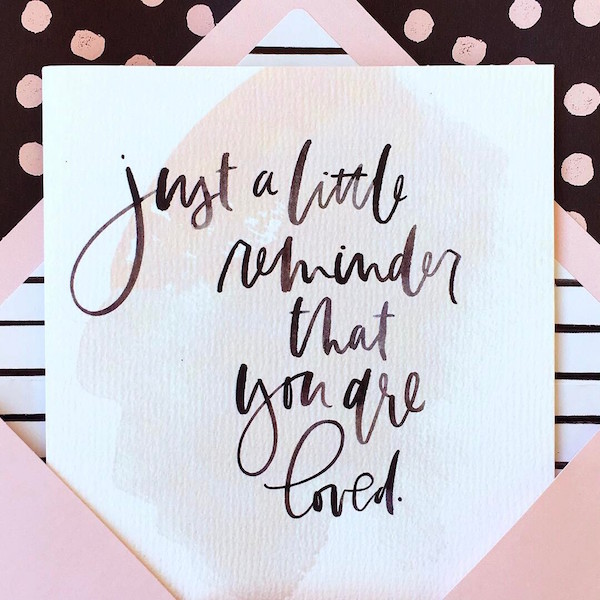 just a little
reminder
that
you are
loved.